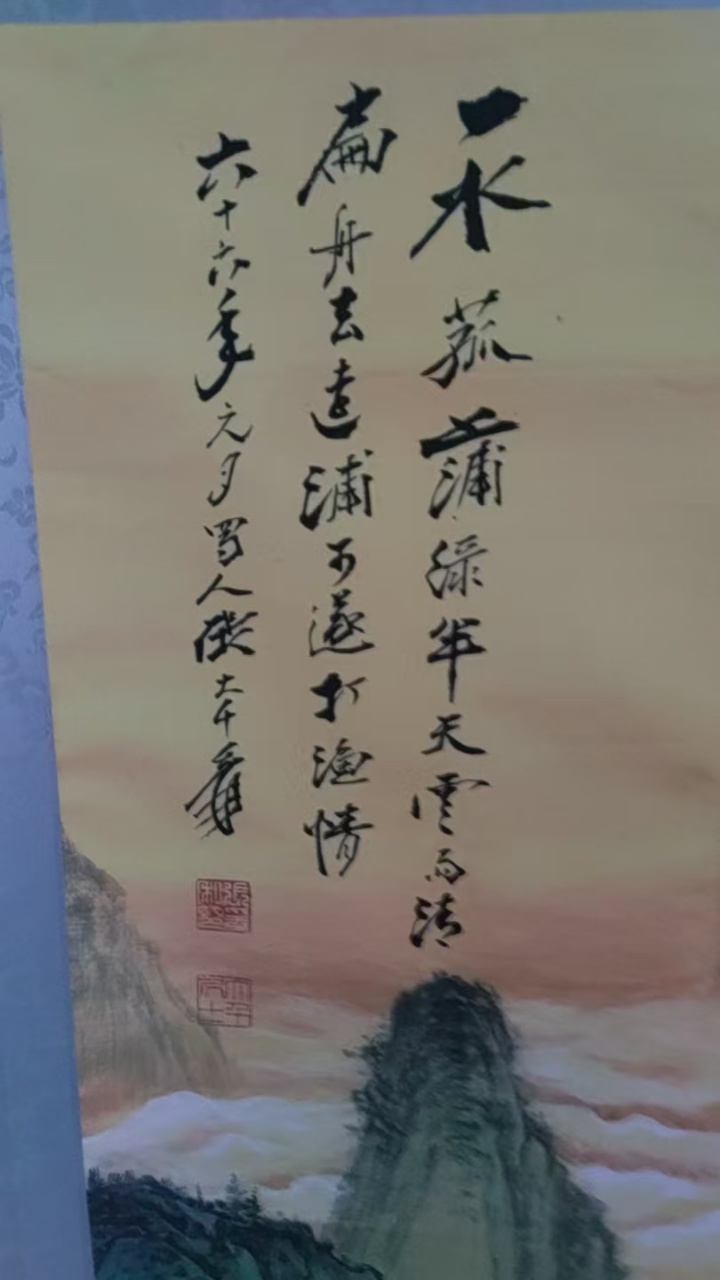 一水菰蒲綠半天雲雨清
扁舟去遠浦可遂打漁情
六十六年元夕蜀人張大千爰
大千居士